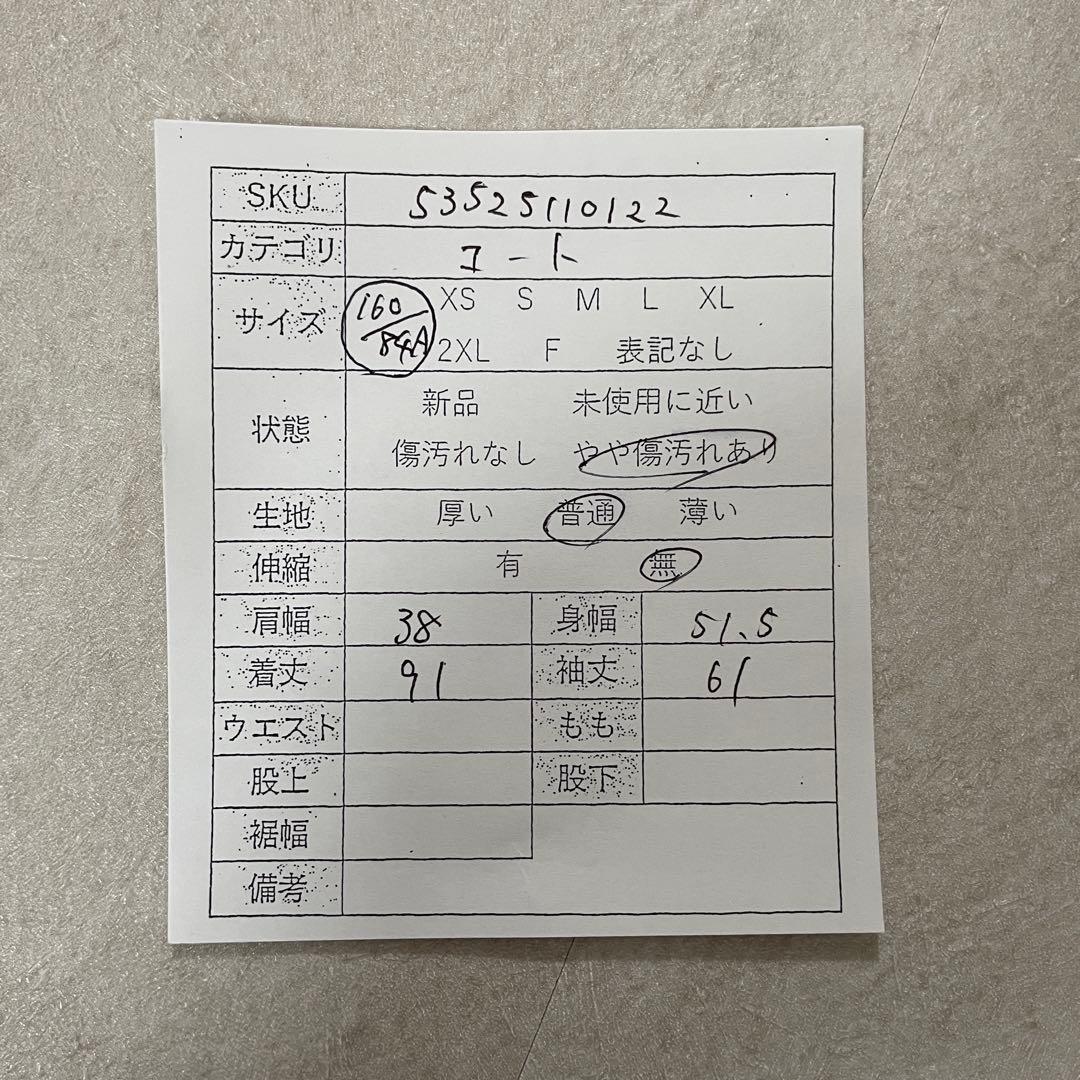 SKU 53525110122
カテゴリ コート
サイズ 160/84A XS S M L XL
2XL F 表記なし
状態 新品 未使用に近い
傷汚れなし やや傷汚れあり
生地 厚い 普通 薄い
伸縮 有 無
肩幅 38 身幅 51.5
着丈 91 袖丈 61
ウエスト もも
股上 股下
裾幅
備考